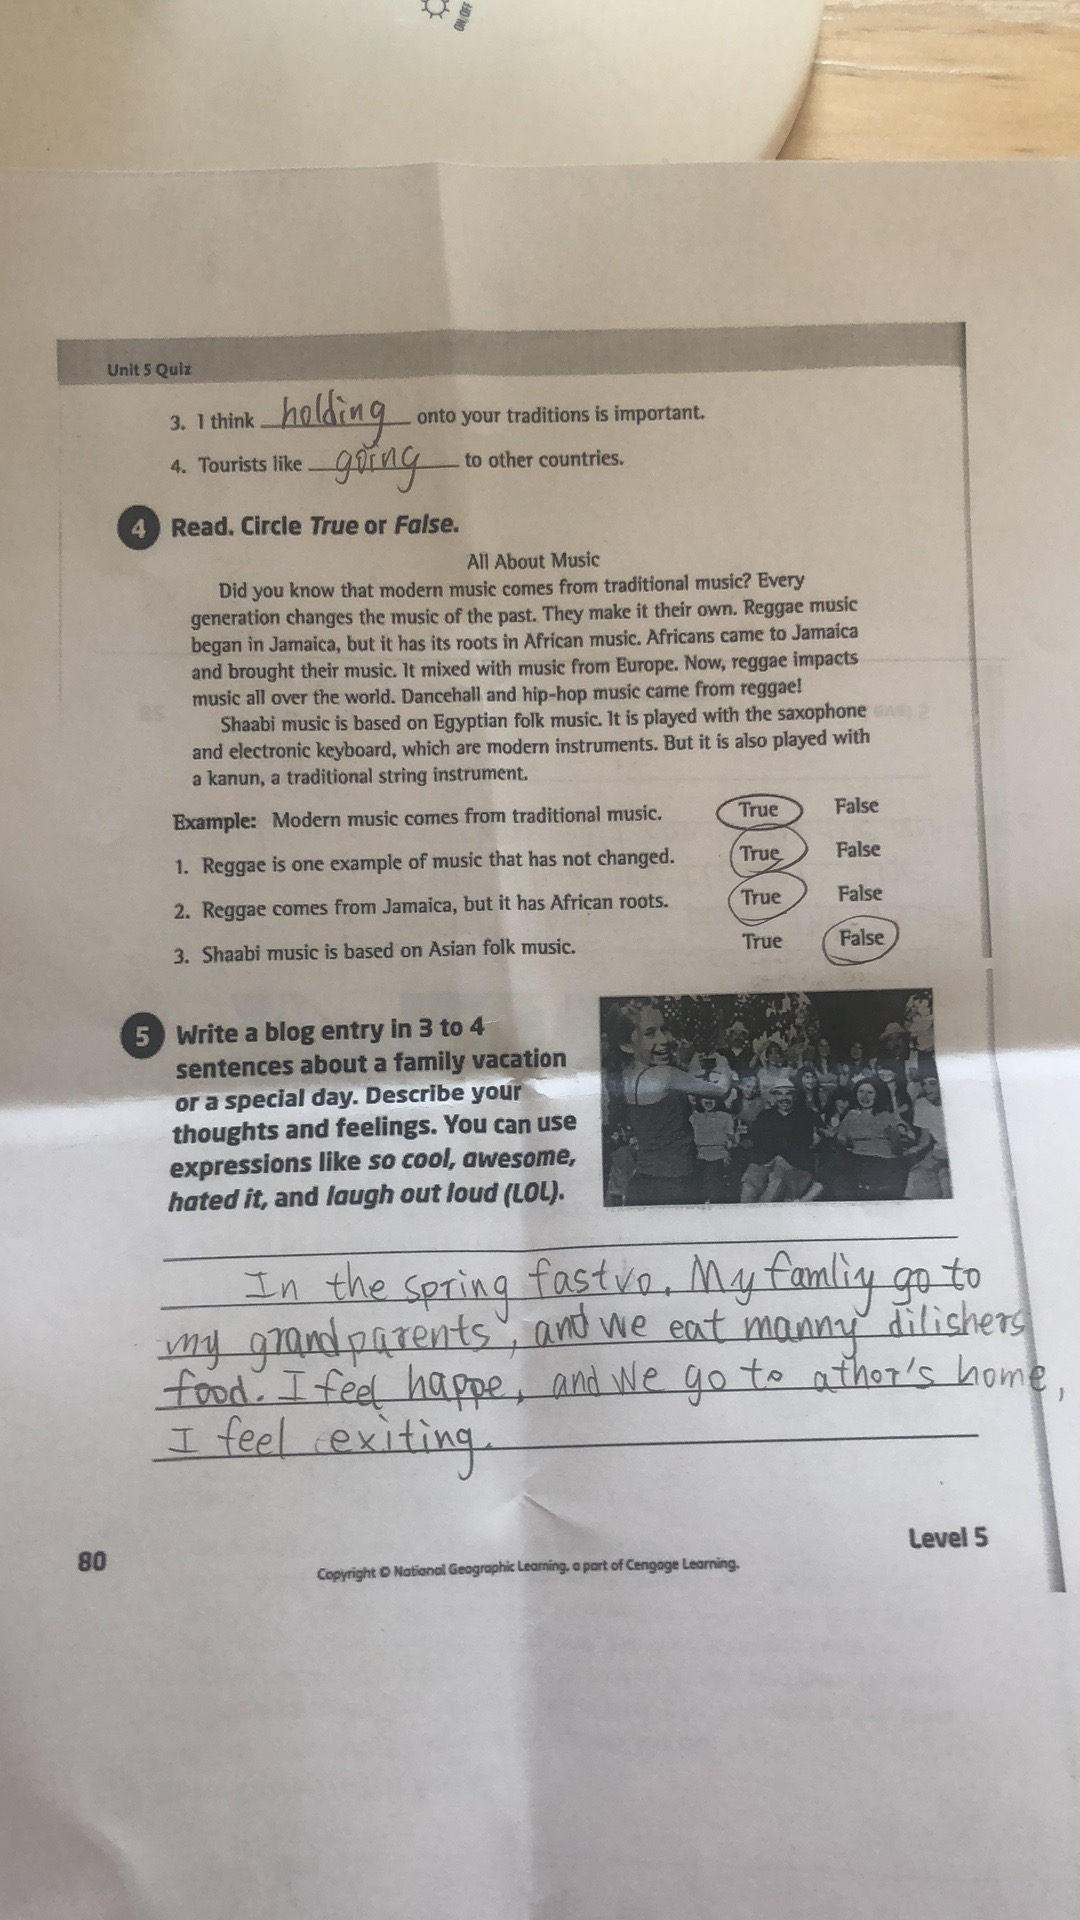 ON/OFF
Unit 5 Quiz
3. I think holding onto your traditions is important.
4. Tourists like going to other countries.
4 Read. Circle True or False.
All About Music
Did you know that modern music comes from traditional music? Every
generation changes the music of the past. They make it their own. Reggae music
began in Jamaica, but it has its roots in African music. Africans came to Jamaica
and brought their music. It mixed with music from Europe. Now, reggae impacts
music all over the world. Dancehall and hip-hop music came from reggae!
Shaabi music is based on Egyptian folk music. It is played with the saxophone
and electronic keyboard, which are modern instruments. But it is also played with
a kanun, a traditional string instrument.
Example: Modern music comes from traditional music. True False
1. Reggae is one example of music that has not changed. True False
2. Reggae comes from Jamaica, but it has African roots. True False
3. Shaabi music is based on Asian folk music. True False
5 Write a blog entry in 3 to 4
sentences about a family vacation
or a special day. Describe your
thoughts and feelings. You can use
expressions like so cool, awesome,
hated it, and laugh out loud (LOL).
In the spring fastvo. My famliy go to
my grandparents, and we eat manny dilishers
food. I feel happe, and we go to athor's home,
I feel exiting.
80
Copyright © National Geographic Learning, a part of Cengage Learning.
Level 5